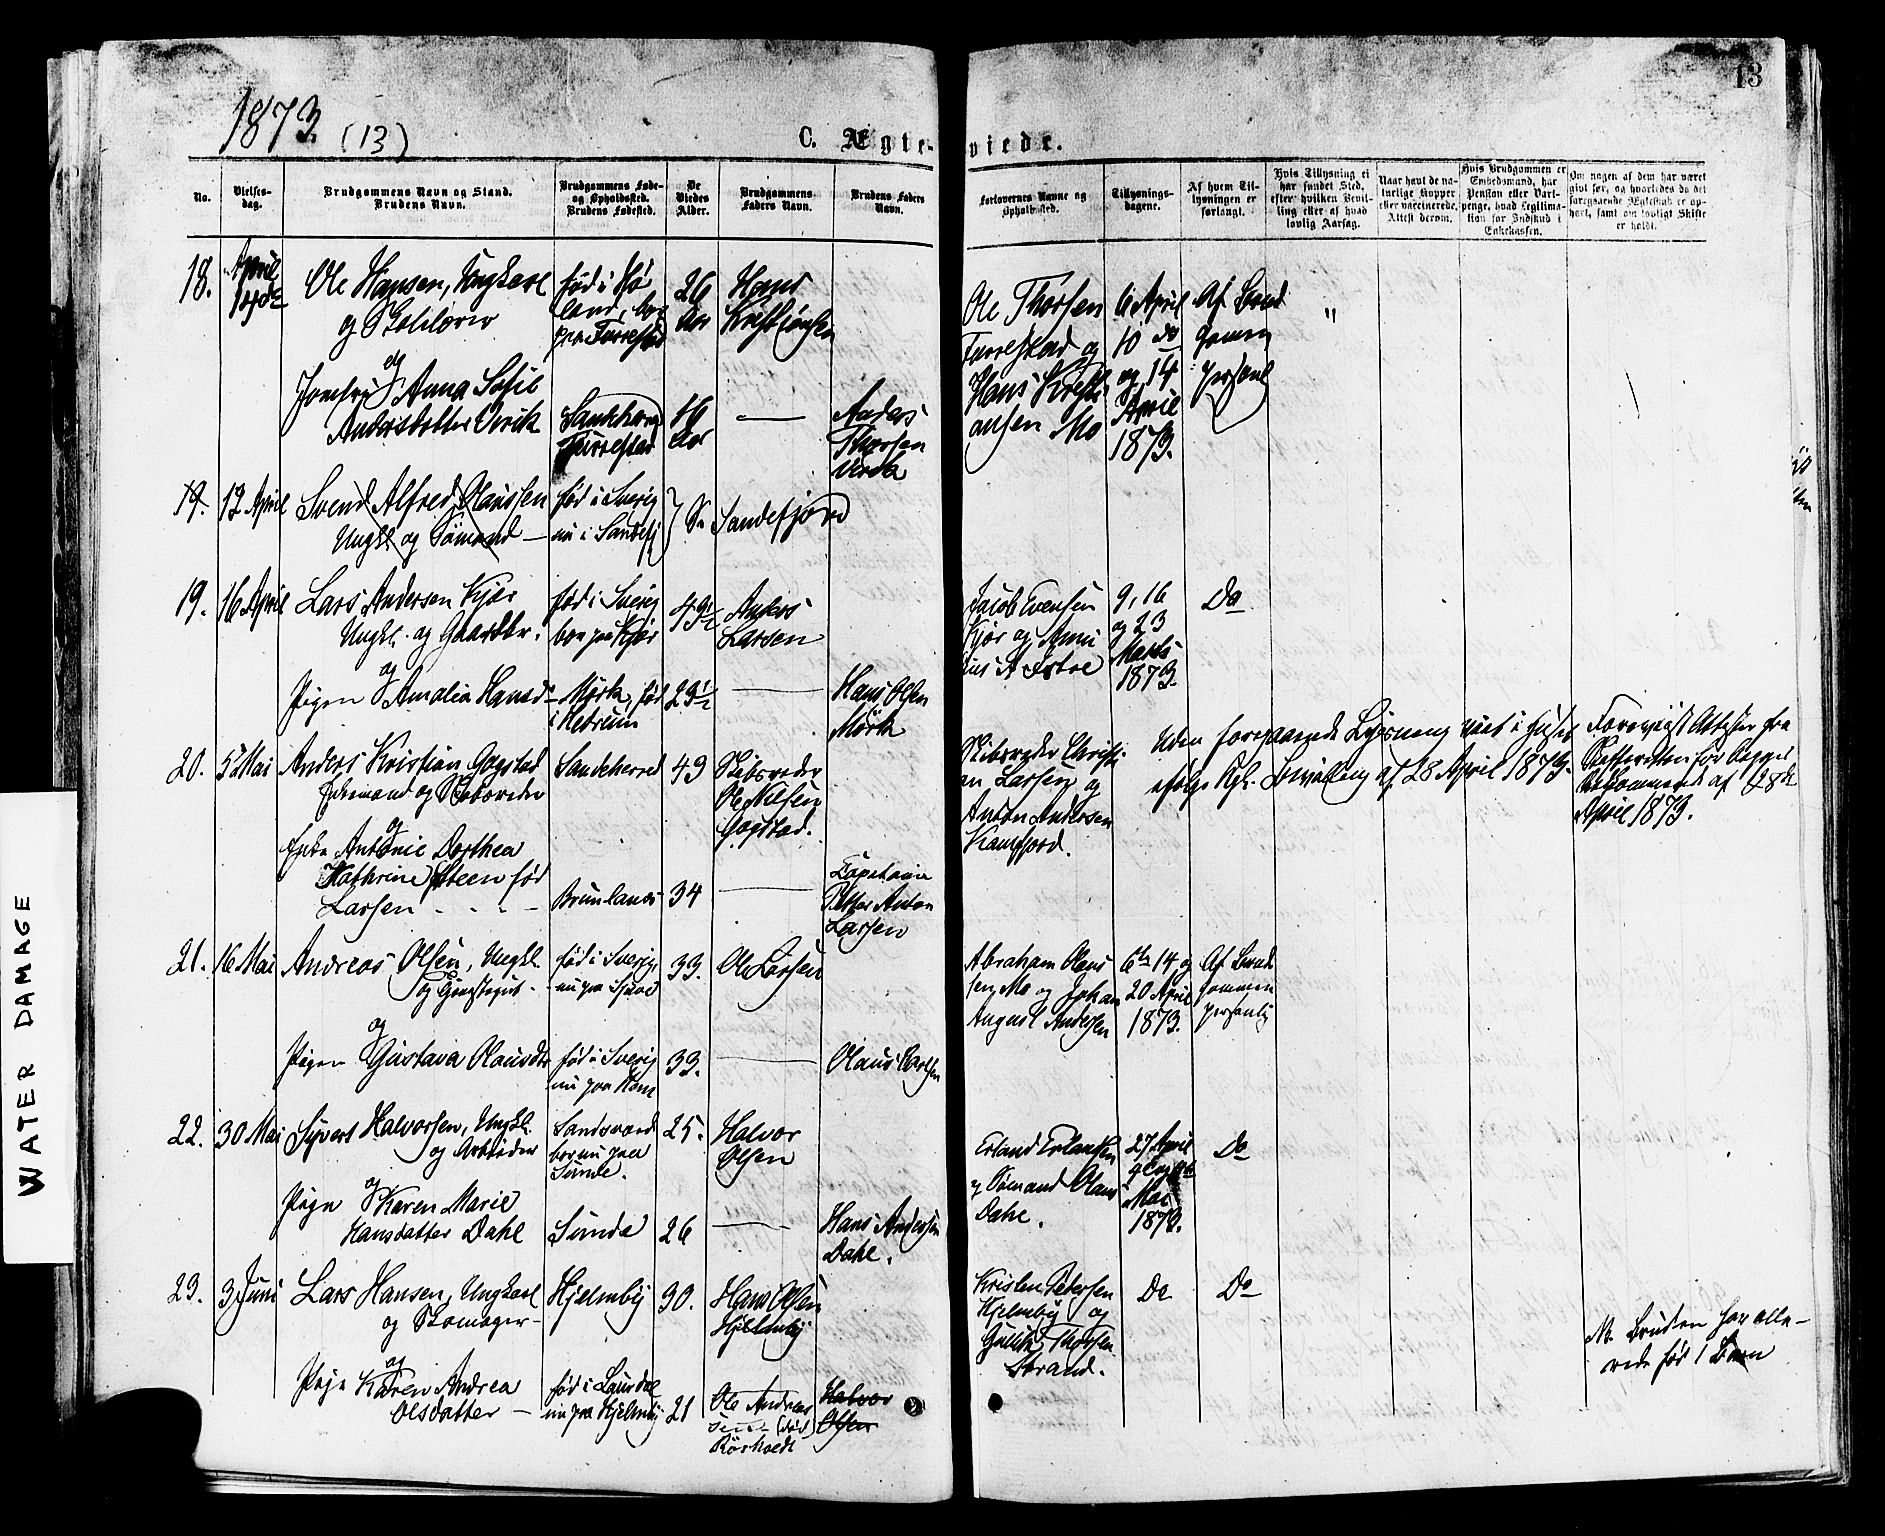 1873.
(13)
13
C. Ægte-
viede.
No.
Vielses-
dag.
Brudgommens Navn og Stand.
Brudens Navn.
Brudgommens Føde-
og Opholdssted.
Brudens Fødested.
De
Viedes
Alder.
Brudgommens
Faders Navn.
Brudens Faders
Navn.
Forlovernes Navne og
Opholdssted.
Tillysnings-
dagene.
Af hvem Til-
lysningen er
forlangt.
Hvis Tillysning ei
har fundet Sted,
efter hvilken Bevil-
ling eller af hvad
lovlig Aarsag.
Naar havt de na-
turlige Kopper
eller vaccinerede,
Attest derom.
Hvis Brudgommen er
Embedsmand, har
Pension eller Vart-
penge, hvad Legitima-
tion for Indskud i
Enkekassen.
Om nogen af dem har været
gift før, og hvorledes da det
foregaaende Ægteskab er op-
hørt, samt om lovligt Skifte
er holdt.
18.
April
14de
Ole Hansen, Ungkarl
og
og
Jomfru Anna Sofie
Andersdatter Virik
født i Hø
land, bor
paa Furrestad
Sandeherred
Furrestad
26
Aar
Hans
Kristiansen
Anders
Thorsen
Virik
Ole Thorsen
Furrestad og
Hans Kristi
ansen Mo
6 April
10 do
og 14
April
1873.
Af Brud
gommen
personl
"
19. 12 April Svend Alfred Olaussen
Ungkl. og Sømand –
født i Sverig
nu i Sandefj
Se Sandefjord
19. 16 April Lars Andersen Kjær
Ungkl. og Gaardbr.
og
Pigen Amalia Hansd.
født i Sverig
bor paa Kjær
Mørk, født
i Hedrum
49½
23½
Anders
Larsen
Hans Olsen
Mørk
Jacob Evensen
Kjær og
9, 16
og 23
Marts
1873.
Do
20. 5 Mai Anders Kristian Gogstad
Enkemand og Skibsreder
og
Enke Antonie Dorthea
Kathrine Steen født
Larsen
Sandeherred
Brunlanes
49
34
Skibsreder
Ole Nilsen
Gogstad.
Capitain
Petter Anton
Larsen
Skibsreder Christi-
an Larsen og
Anton Andersen
Kamfjord.
Uden foregaaende Lysning viet i Huset
ifølge Kgl. Bevilling af 28 April 1873.
Forevist Attester fra
Skifteretten for begge
Vedkommende af 28de
April 1873.
21. 16 Mai Andreas Olsen, Ungkl.
og
og
Pigen Gustava Olausdtr
født i Sverig,
nu paa
født i Sverig
nu paa
33.
33.
Ole Larsen
Olaus Karlsen
Abraham Olaus
sen Mo og Johan
August Andersen
6te 14 og
20 April
1873.
Af Brud
gommen
personlig
22. 30 Mai Syvert Halvorsen, Ungkl.
og Arbeider
og
Pign Karen Marie
Hansdatter Dahl
Sandsværd
bor nu paa
Sunde.
Sunde
25.
26
Halvor
Olsen
Hans Andersen
Dahl.
Erland Erlandsen
og Sømand Olaus
Dahl.
27 April
Mai
1873.
Do
23. 3 Juni Lars Hansen, Ungkarl
og Skomager –
og
Pige Karen Andrea
Olsdatter –
Hjelmby
født i Laurdal
nu paa Hjelmby
30.
21
Hans Olsen
Hjelmby
Ole Andreas
sen (død)
Rørholdt
Halvor
Olsen
Kristen Petersen
Hjelmby og
Gullik Thorsen
Strand.
Do
Do
N. Bruden har alle-
rede født 1 Barn
WATER DAMAGE